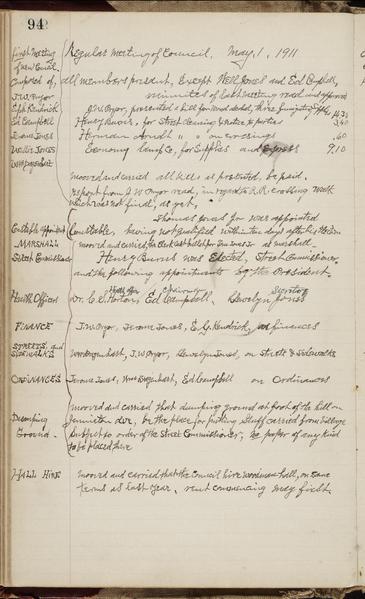 94
First Meeting
of new Council
composed of,
J.W. Pryor
E.G. Kendrick
Ed Campbell
Jerome Jones
Wellie Jones
Wm Engenhart
Regular Meeting of Council, May, 1, 1911
all members present, Except Will Jones and Ed Campbell,
minutes of last meeting read and approved
J.W. Pryor, presented a bill for
Henry Burns, for Street cleaning & notice to parties 3.40
Herman Arndt " " on crossings .60
Economy Lamp Co, for Supplies and Express 9.10
moved and carried all bills as presented, be paid.
report from J.W. Pryor read, in regard to R.R. crossing work
which was not final, as yet,
Constable appointed
MARSHALL
Street Commissioner
Thomas Jones Jr was appointed
Constable, having not qualified within ten days after his Election
moved and carried, the Clerk cast ballot for Tom Jones Jr as marshall.
Henry Burns was Elected, Street Commissioner
and the following appointments by the President.
Health Officers
Health offr Chairman Secretary
Dr. C.E. Horton, Ed Campbell, Llewelyn Jones
FINANCE
J.W. Pryor, Jerome Jones, E.G. Kendrick, on finances
STREETS and
SIDEWALKS
Wm Engenhart, J.W. Pryor, Llewelyn Jones, on streets & sidewalks
ORDINANCES
Jerome Jones, Wm Engenhart, Ed Campbell on Ordinances
Dumping
Ground.
moved and carried that dumping ground at foot of the hill on
Ave, be the place for putting stuff carried from Village
subject to order of the Street Commissioner, no paper of any kind
to be placed here
HALL HIRE
moved and carried that the Council hire Woodman hall, on same
terms as last year, rent commencing May first.